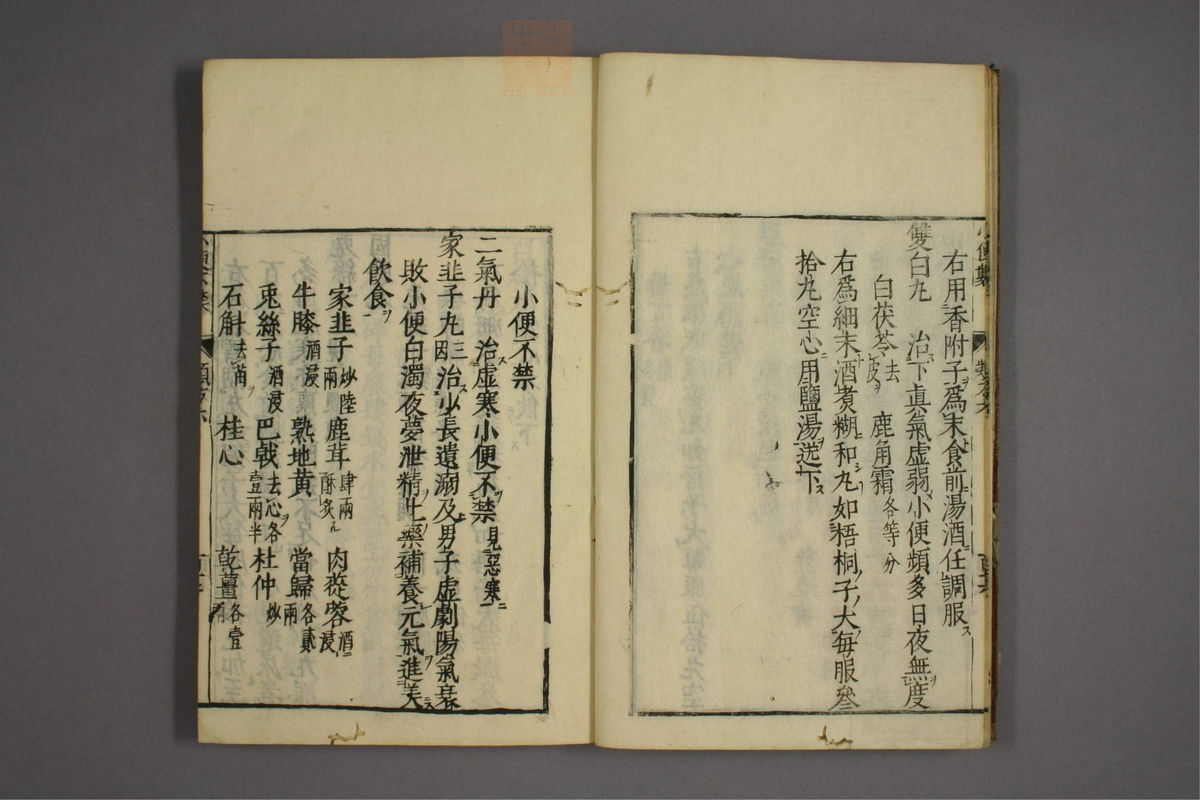 右用香附子爲末食前湯酒任調服
雙白丸 治下眞氣虛弱小便頻多日夜無度
白茯苓去皮 鹿角霜各等分
右爲細末酒煑糊和丸如梧桐子大每服叄
拾丸空心用鹽湯送下
小便不禁
二氣丹 治虛寒小便不禁見惡寒
家韭子丸三因 治少長遺溺及男子虛劇陽氣衰
敗小便白濁夜夢泄精此藥補養元氣進美
飲食
家韭子炒陸兩 鹿茸肆兩酥炙 肉蓯蓉酒浸
牛膝酒浸 熟地黄 當歸各貳兩
兎絲子酒浸 巴戟去心各壹兩半 杜仲炒
石斛去苗 桂心 乾薑各壹兩